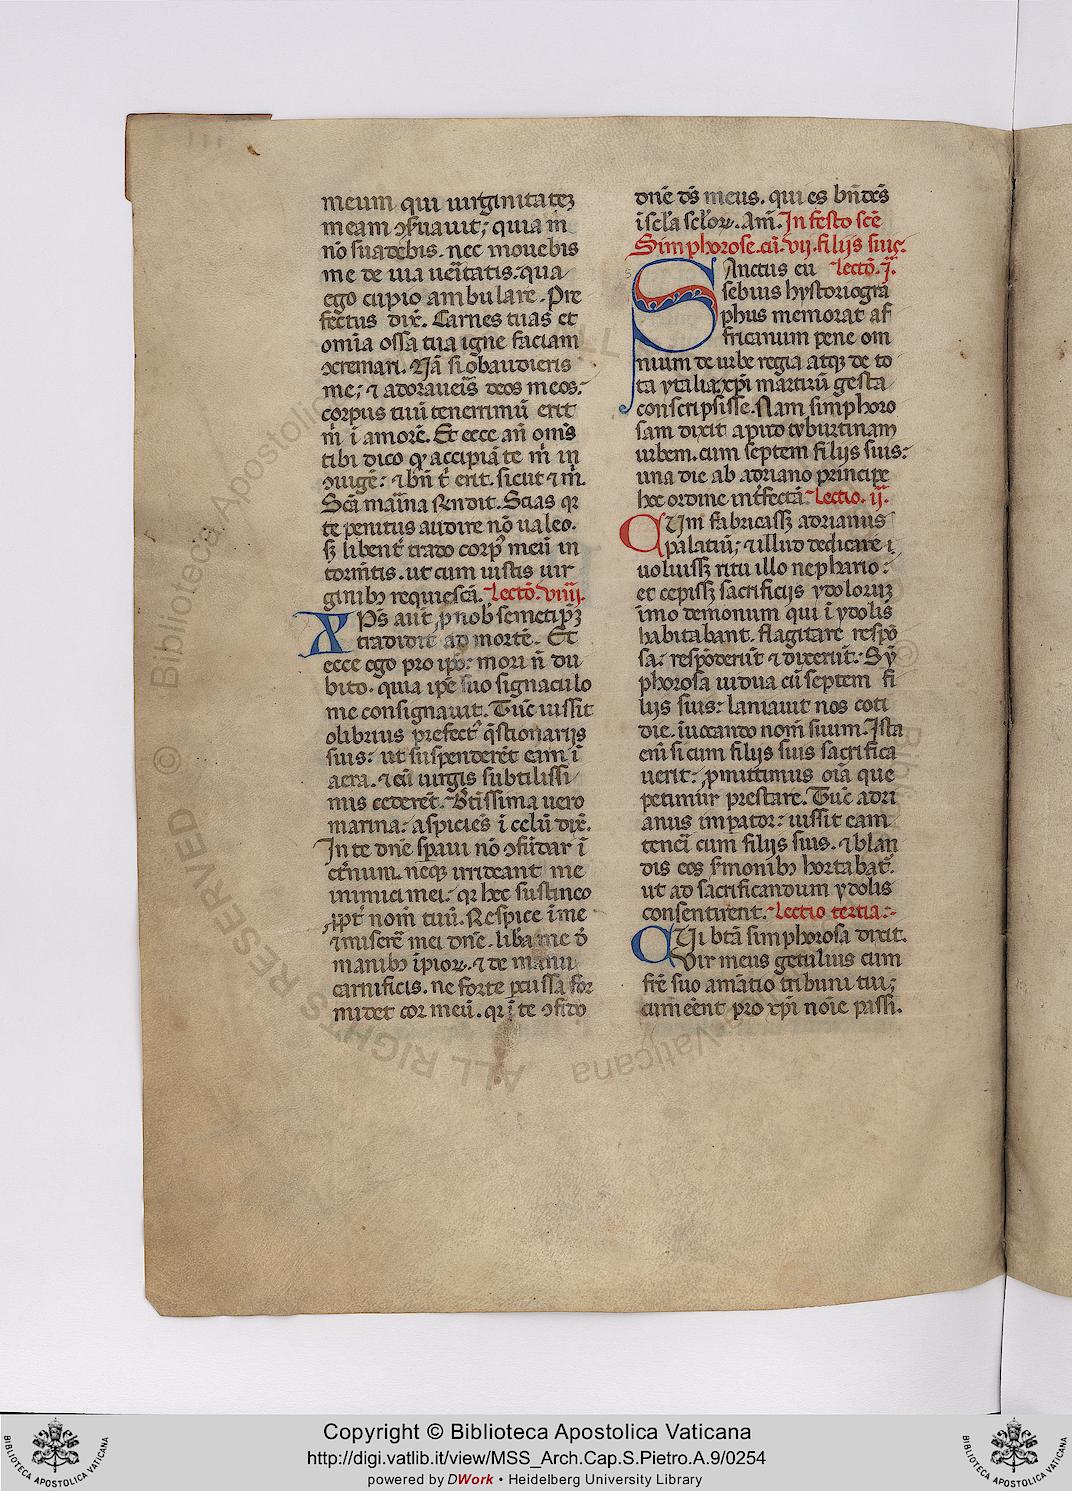 meum qui uirginitateꝫ
meam ꝯẜuauit; quia m̄
nō suadebis. nec mouebis
me de uia uẽitatis. qua
ego cupio ambulare. Pre
fectus dix̄. Carnes tuas et
omīa ossa tua igne faciam
ꝯcremari. Nā si obaudieris
me; ⁊ adoraueīs deos meos.
corpus tuū tenerrimū erit
m̄ ī amorē. Et ecce añ om̄s
tibi dico ꝙ accipiā te m̄ in
ꝯiugē. ⁊ bñ t̄ erit. sicut ⁊ m̄.
Scā marīa rñdit. Scias qꝛ
te penitus audire nō ualeo.
sꝫ libent̄ trado corpꝰ meū in
torm̄tis. ut cum iustis uir
ginibꝫ requiescā. Lectō. viiii.
Xp̄s aut̄ ꝓ nob̄ semetip̄ꝫ
tradidit ad mortē. Et
ecce ego pro ip̄o: mori ñ du
bito. quia ip̄e suo signaculo
me consignauit. Tūc iussit
olibrius prefectꝰ q̄stionariis
suis: ut suspenderēt eam ī
aera. ⁊ eū uirgis subtilissi
mis cederēt. B̄tissima uero
marina: aspiciēs ī celū dix̄.
In te dn̄e sp̄aui nō ꝯfūdar ī
et̄num. neqꝫ irrideant me
inimici mei. qꝛ hec sustineo
ꝓpt̄ nom̄ tuū. Respice ī me
⁊ miserē mei dn̄e. lib̄a me d̄
manibꝫ īpioꝝ. ⁊ de manu
carnificis. ne forte ꝑcussa for
midet cor meū. qꝛ ī te ꝯfido
dn̄e dš meus. qui es bn̄dc̄s
ī scl̄a scl̄oꝝ. Am̄. In festo scē
Simphorose. cū. vij. filijs suis.
Sanctus eu Lectō. j.
sebius hystoriogra
phus memorat af
fricanum pene om
nium de urbe regia atqꝫ de to
ta ytalia xp̄i martirū gesta
conscripsisse. Nam simphoro
sam dixit apud tyburtinam
urbem. cum septem filijs suis:
una die ab adriano principe
hec ordine int̄fectā. Lectio. ij.
Cum fabricassꝫ adrianus
palatiū; ⁊ illud dedicare ī
uoluissꝫ ritu illo nephario:
et cepissꝫ sacrificijs ydoloruꝫ
īmo demonum qui ī ydolis
habitabant. flagitare respō
sa: respōderūt ⁊ dixerūt. Sȳ
phorosa uidua cū septem fi
lijs suis: laniauit nos coti
die. īuocando nom̄ suum. Ista
em̄ si cum filijs suis sacrifica
uerit: ꝓmittimus oīa que
petimur prestare. Tūc adri
anus imꝑator: iussit eam
tenei cum filijs suis. ⁊ blan
dis eos ẜmonibꝫ hortabat̄.
ut ad sacrificandum ydolis
consentirent. Lectio tertia.
Cui btā simphorosa dixit.
Vir meus getulius cum
fr̄e suo amātio tribuni tui;
cum eēnt pro xp̄i noīe passi.
Copyright © Biblioteca Apostolica Vaticana
http://digi.vatlib.it/view/MSS_Arch.Cap.S.Pietro.A.9/0254
powered by DWork • Heidelberg University Library